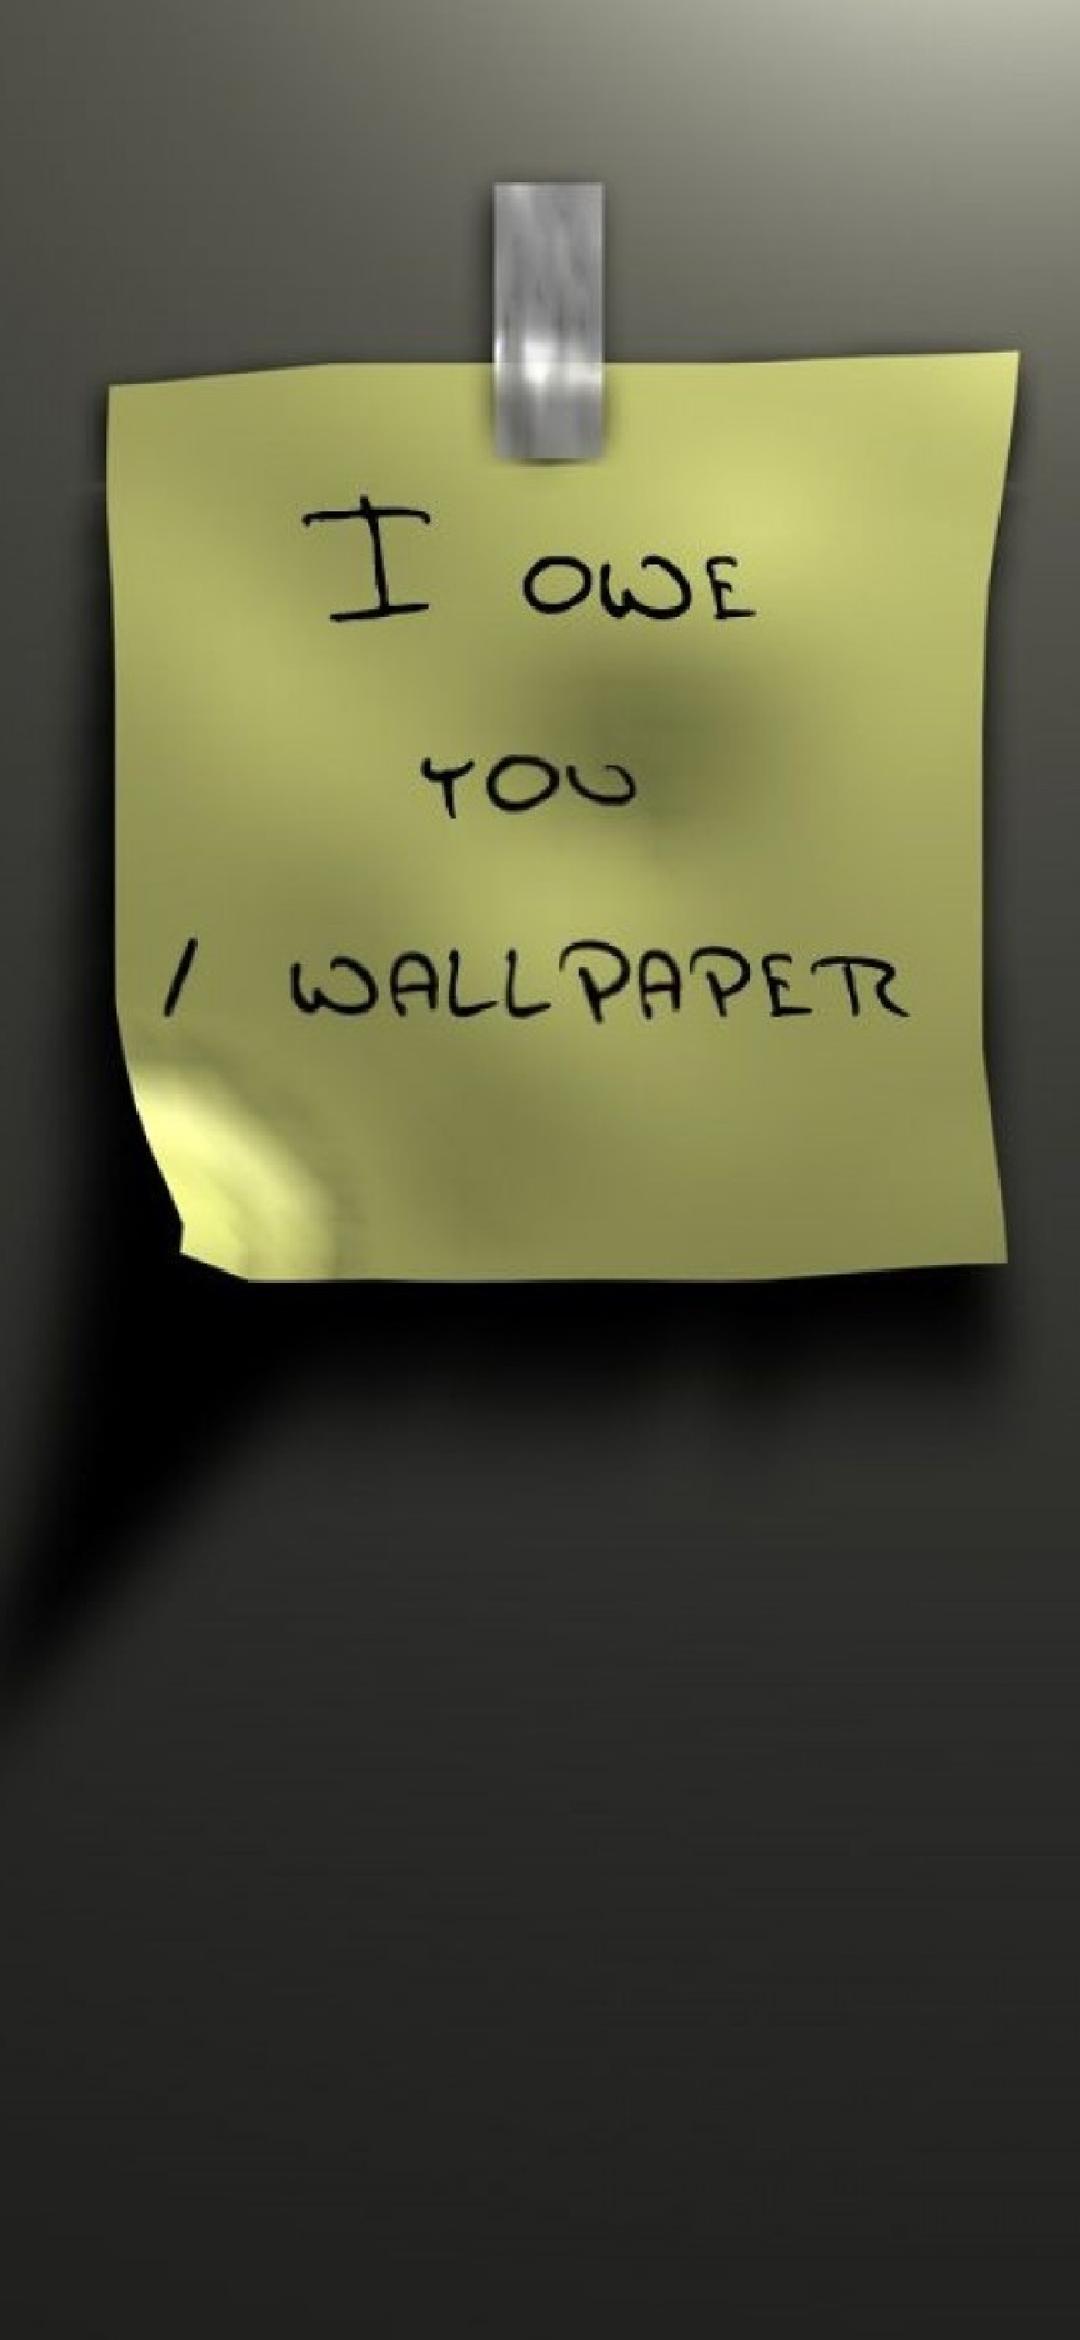 I OWE
YOU
1 WALLPAPER